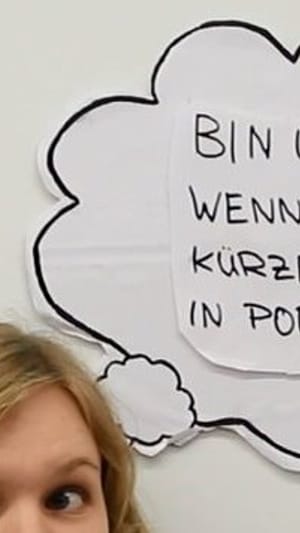 BIN
WENN
KÜRZE
IN PO